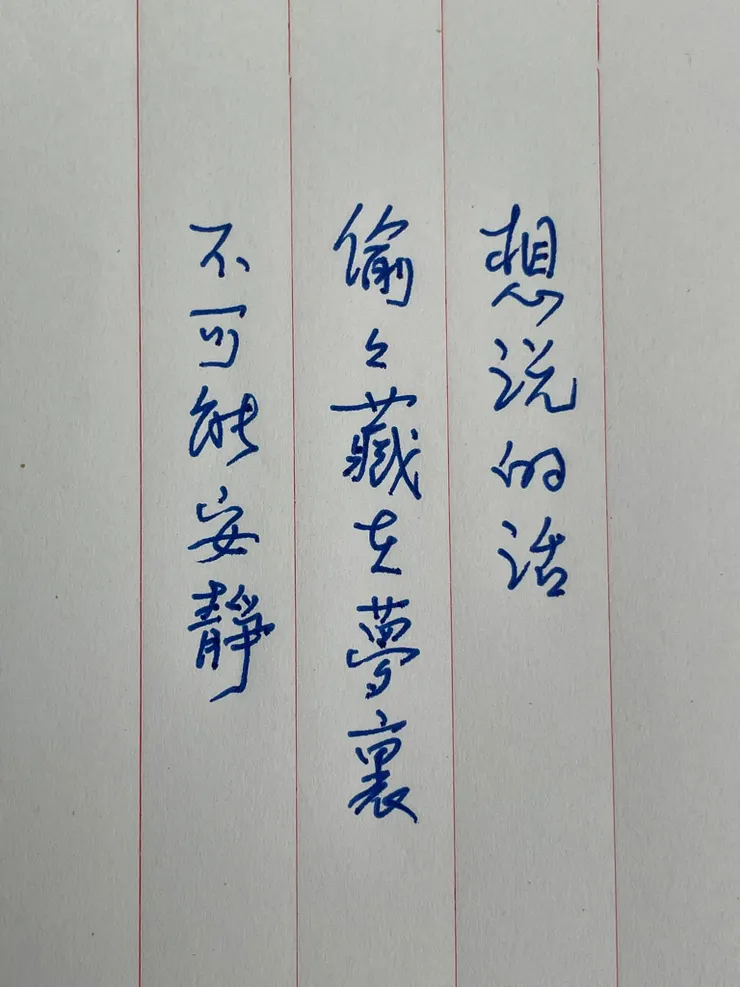 想说的话
偷々藏在夢裏
不可能安靜